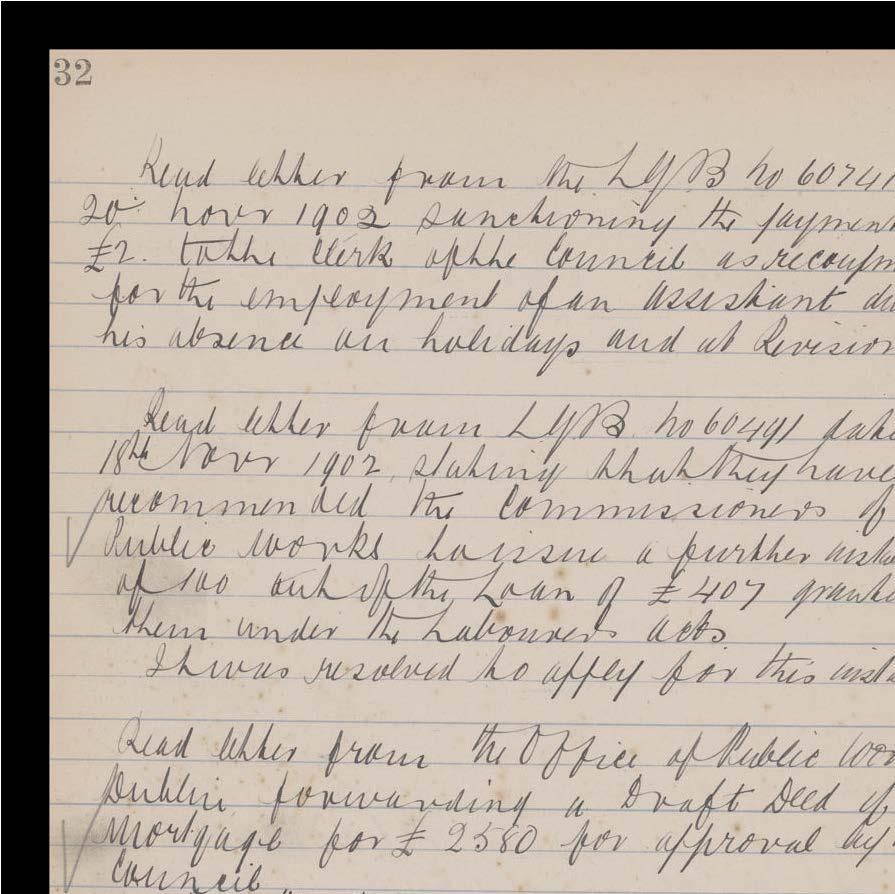 32
Read letter from the LGB No 60741
20th Novr 1902 sanctioning the payment
£2. to the Clerk of the Council as recoupm
for the employment of an assistant du
his absence on holidays and at Revision
Read letter from LGB No 60491 date
18th Novr 1902, stating that they have
recommended the Commissioners of
Public Works to issue a further insta
of 100 out of the Loan of £407 grante
them under the Labourers acts
It was resolved to apply for this insta
Read letter from the Office of Public Wor
Dublin forwarding a Draft Deed of
Mortgage for £2580 for approval by
Council